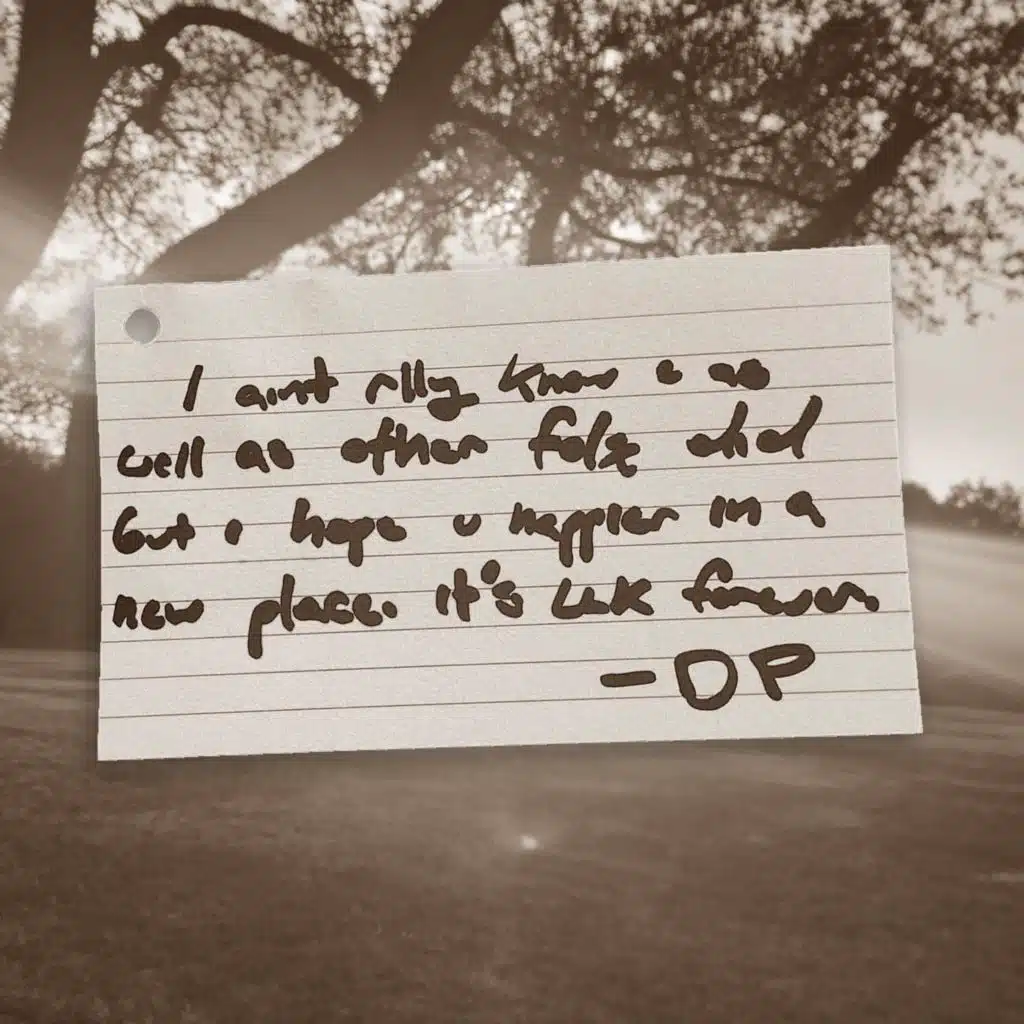 I aint rlly know u as
well as other folx did
but i hope u happier in a
new place. it's LLK forever.
-DP